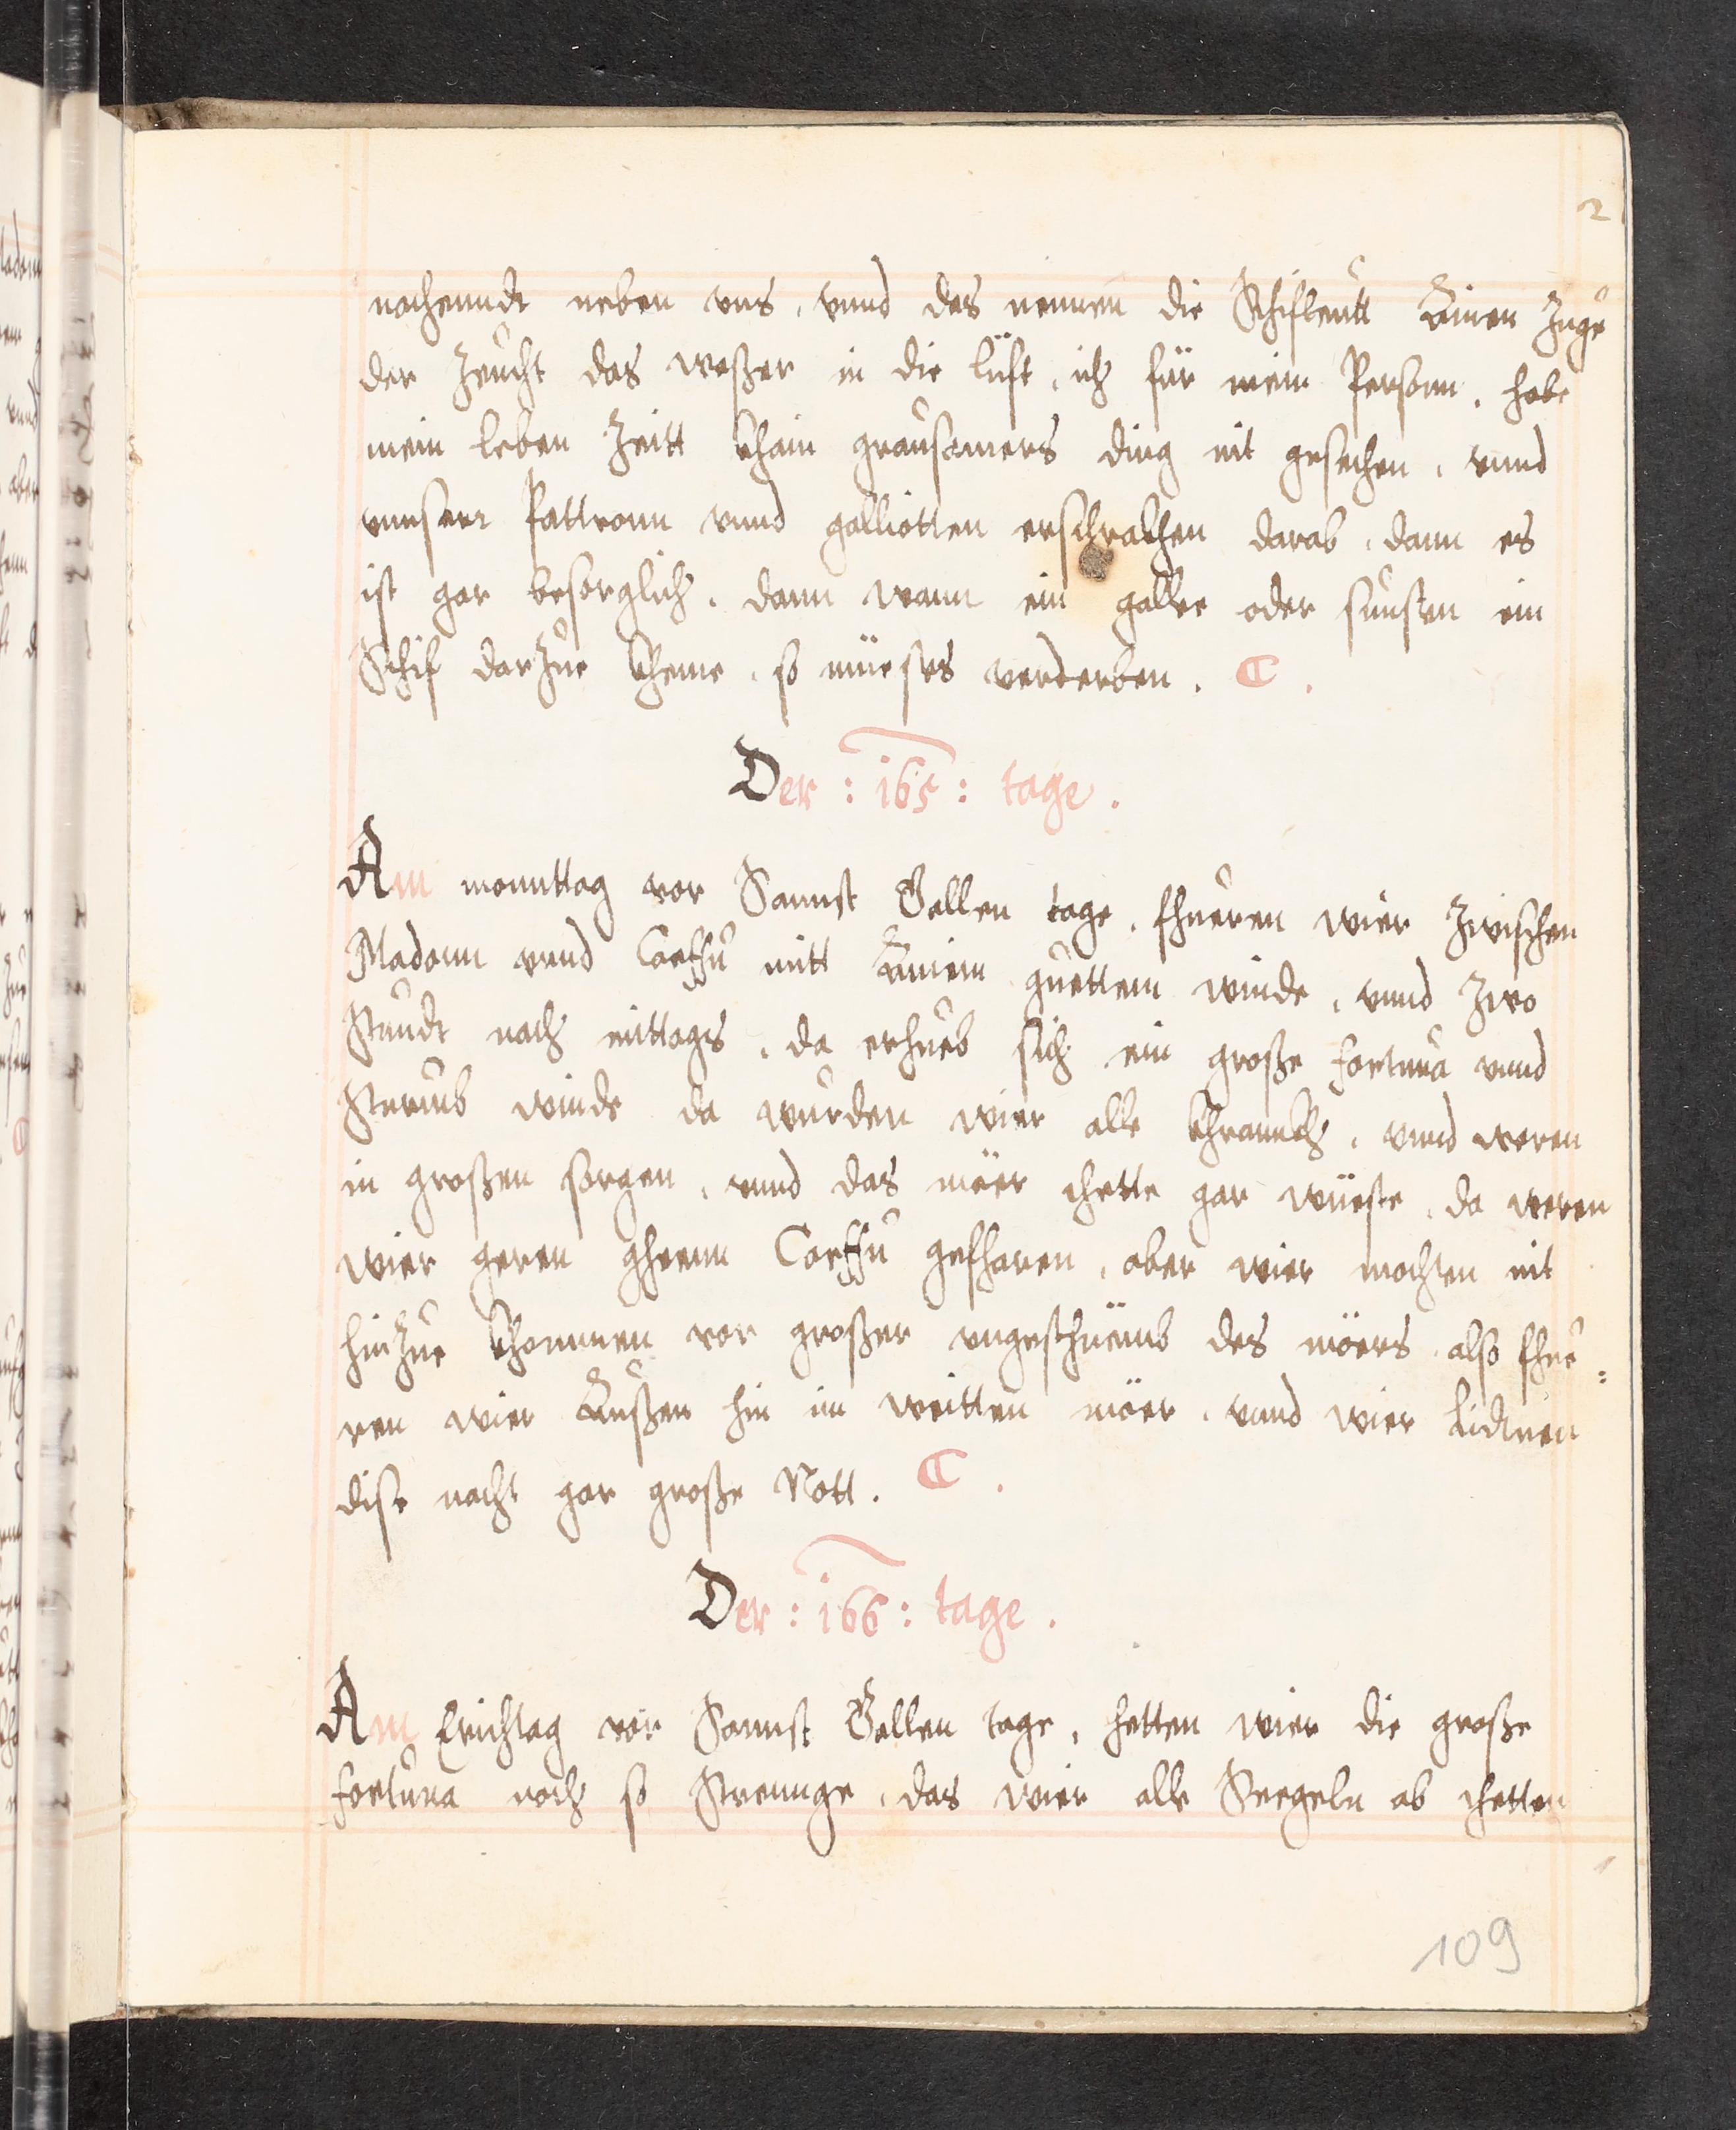 2
nochenndt neben vns, vnnd das nennen die Schifleutt Ainen Zuge
der Zeucht das waßer in die lüft, ich für mein Personn, habe
mein leben Zeitt khain grausamers ding nit gesechen, vnnd
vnnserr Pattronn vnnd galliotten erschrakhen darab, dann es
ist gar besorglich, dann wann ein gallee oder sunsten ein
Schif darzue kheme, so müeßes verderben. C.
Der : 165 : tage.
Am monnttag vor Sannst Gallen tage, fhueren wier Zwischen
Madonn vnnd Corffu mitt Ainem guettem winde, vnnd Zwo
Stundt nach mittags, da erhueb sich ein große fortuna vnnd
Sturmb winde da wurden wier alle khrannkh, vnnd waren
in großen sorgen, vnnd das möer thette gar wüeste, da weren
wier geren gheenn Corffu gefharen, aber wier mochten nit
hinzue khommen vor großer vngesthüemb des möers, also fhue=
ren wier Außen hin im weitten möer, vnnd wier lidtnen
dise nacht gar große Nott. C.
Der : 166 : tage.
Am Erichtag vor Sannst Gallen tage, hetten wier die große
fortuna noch so Strennge, das wier alle Seegeln ab thetten
109